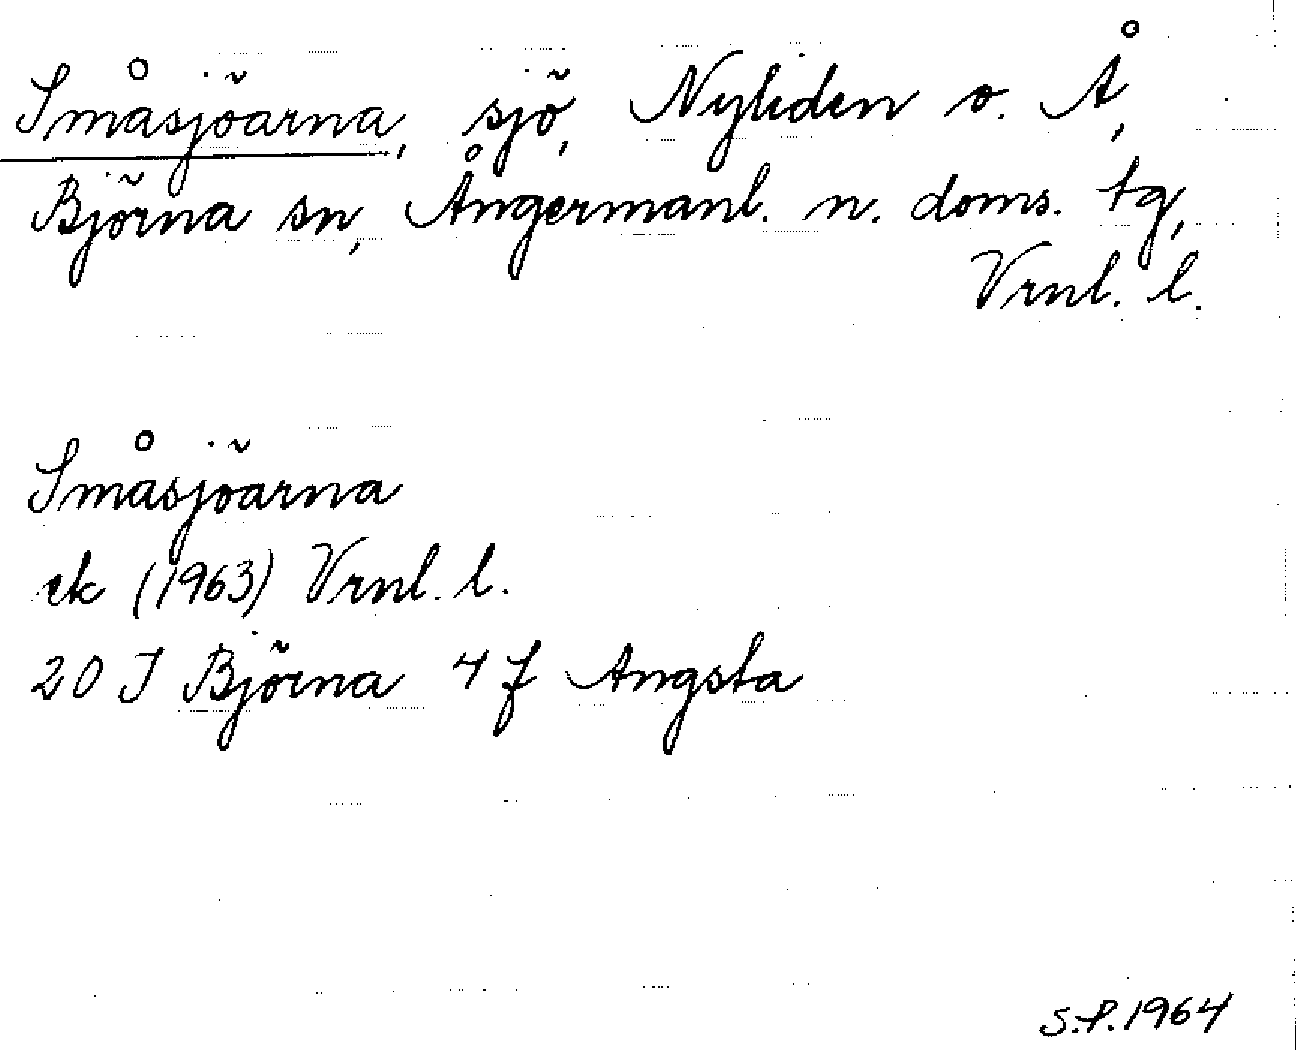 Småsjöarna, sjö, Nyliden o. Å,
Björna sn, Ångermanl. n. doms. tg,
Vrnl. l.
Småsjöarna
ek (1963) Vrnl. l.
20 J Björna 4 f Angsta
S.P. 1964